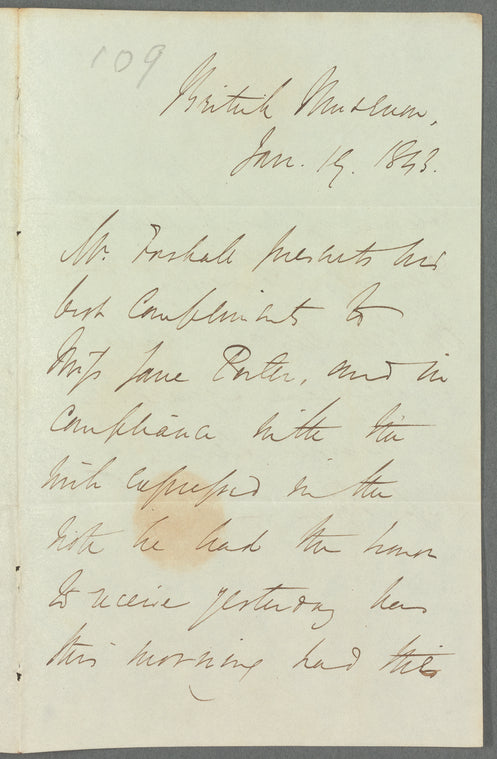 109
British Museum,
Jan. 19. 1843.
Mr. Forshall presents his
best compliments to
Miss Jane Porter, and in
compliance with the
wish expressed in the
note he had the honor
to receive yesterday has
this morning had this